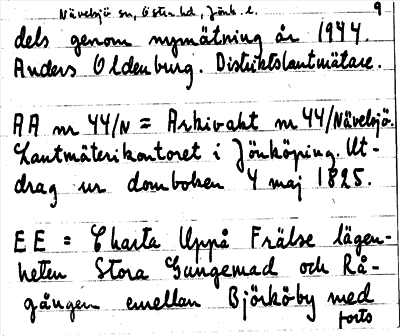 Nävelsjö sn, Östra hd, Jönk. l. 9
dels genom nymätning år 1944.
Anders Oldenburg. Distriktslantmätare.
AA nr 44/N = Arkivakt nr 44/Nävelsjö.
Lantmäterikontoret i Jönköping. Ut-
drag ur domboken 4 maj 1825.
EE = Charta Uppå Frälse lägen-
heten Stora Gungemad och Rå-
gången emellan Björköby med
forts